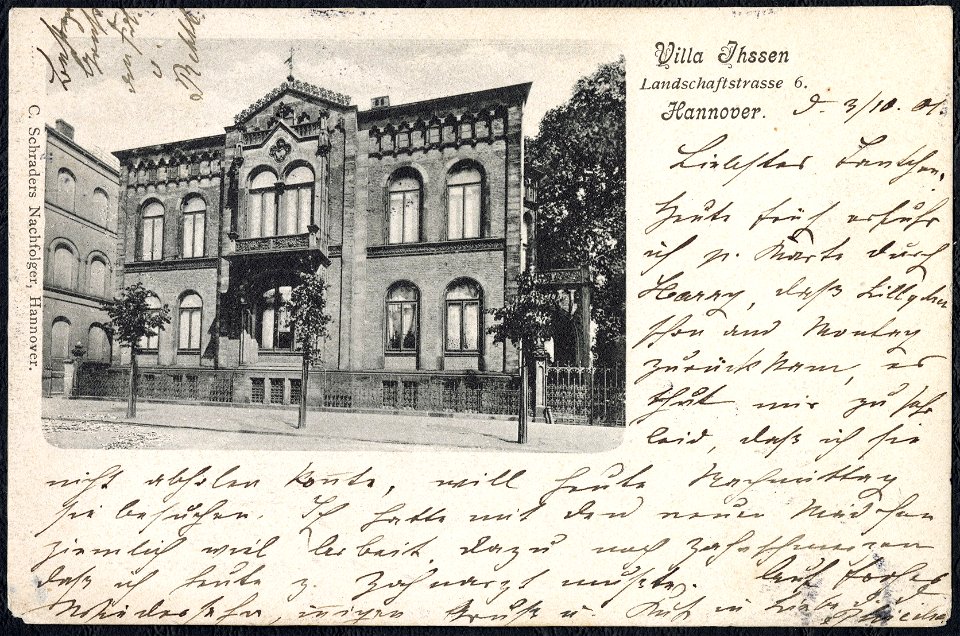 Villa Ihssen
Landschaftstrasse 6.
Hannover. d. 3/10. 01.
Liebstes Tantchen,
Heute früh erfuhr
ich p. Karte durch
Harry, daß Lillychen
schon am Montag
zurück kam, es
thut mir zu sehr
leid, daß ich sie
nicht abholen konnte, will heute Nachmittag
sie besuchen. Ich hatte mit den neuen Mädchen
ziemlich viel Arbeit dazu noch Zahnschmerzen
daß ich heute z. Zahnarzt mußte. Auf frohes
Wiedersehn, innigen Gruß u. Kuß in Liebe
C. Schraders Nachfolger, Hannover.